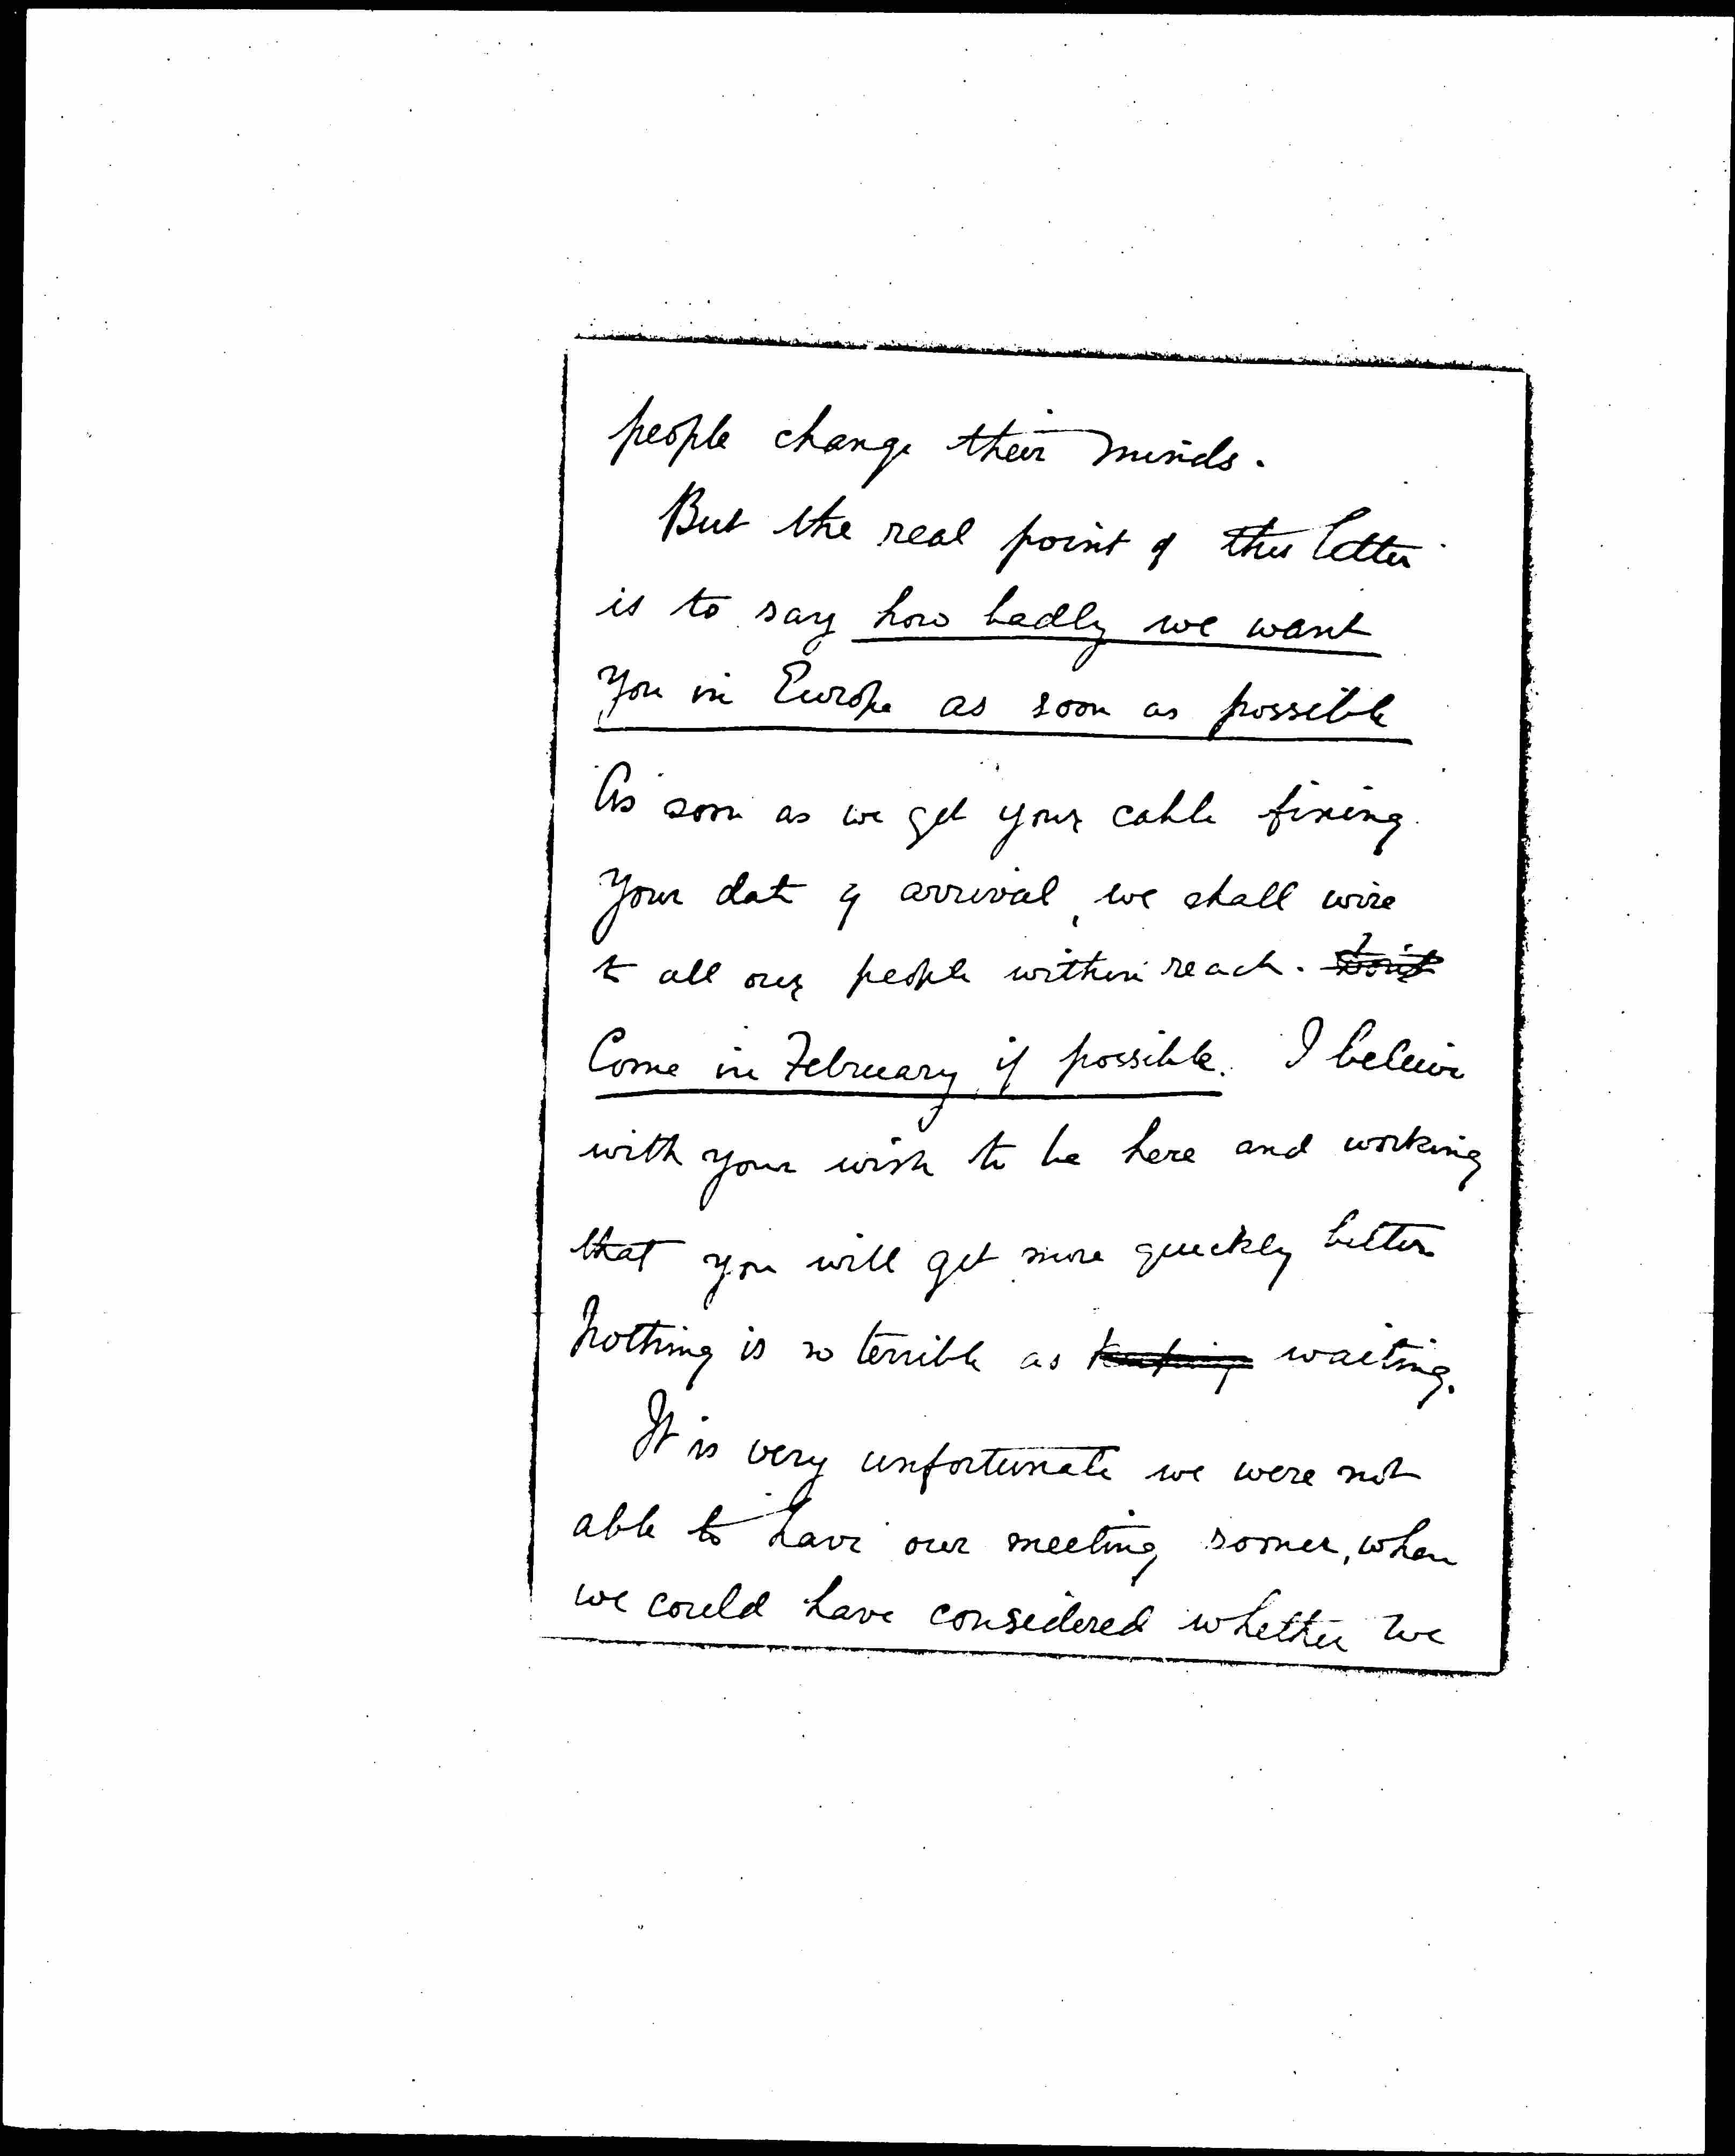 people change their minds.
But the real point of this letter
is to say how badly we want
you in Europe as soon as possible
As soon as we get your cable fixing
your date of arrival, we shall wire
to all our people within reach.
Come in February if possible. I believe
with your wish to be here and working
that you will get more quickly better
Nothing is so terrible as waiting.
It is very unfortunate we were not
able to have our meeting sooner, when
we could have considered whether we